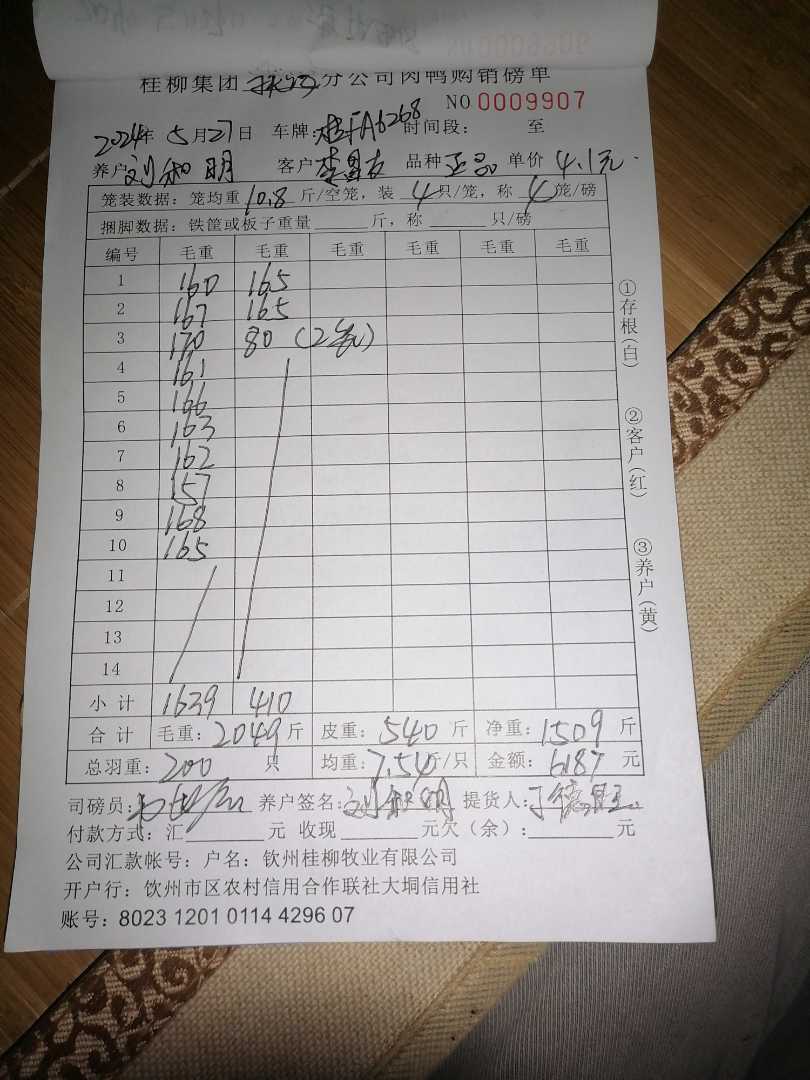 桂柳集团 分公司肉鸭购销磅单
NO 0009907
2024年 5月27日 车牌:桂FA6268 时间段: 至
养户 刘和明 客户 李昌友 品种 正品 单价 4.1元.
笼装数据: 笼均重 10.8 斤/空笼, 装 4 只/笼, 称 4 笼/磅
捆脚数据: 铁筐或板子重量 斤, 称 只/磅
编号 毛重 毛重 毛重 毛重 毛重 毛重
1 160 165
2 167 165
3 170 80 (2笼)
4 161
5 166
6 163
7 162
8 157
9 168
10 165
11
12
13
14
小计 1639 410
合计 毛重: 2049 斤 皮重: 540 斤 净重: 1509 斤
总羽重: 200 只 均重: 7.54 斤/只 金额: 6187 元
司磅员: 养户签名: 刘和明 提货人:
付款方式: 汇 元 收现 元欠(余): 元
公司汇款帐号: 户名: 钦州桂柳牧业有限公司
开户行: 钦州市区农村信用合作联社大垌信用社
账号: 8023 1201 0114 4296 07
①存根(白)
②客户(红)
③养户(黄)